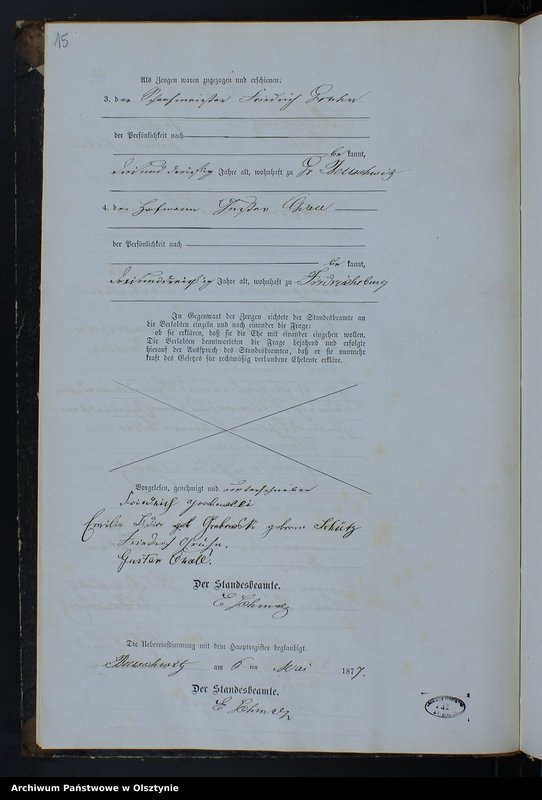 15
Als Zeugen waren zugezogen und erschienen:
3. der Friedrich
der Persönlichkeit nach
be kannt,
drei und dreißig Jahre alt, wohnhaft zu Gr
4. der Hofmann Gustav
der Persönlichkeit nach
be kannt,
dreiunddreißig Jahre alt, wohnhaft zu Friedrichsburg
In Gegenwart der Zeugen richtete der Standesbeamte an
die Verlobten einzeln und nach einander die Frage:
ob sie erklären, daß sie die Ehe mit einander eingehen wollen.
Die Verlobten beantworteten die Frage bejahend und erfolgte
hierauf der Ausspruch des Standesbeamten, daß er sie nunmehr
kraft des Gesetzes für rechtmäßig verbundene Eheleute erkläre.
Vorgelesen, genehmigt und unterschrieben
Friedrich Grabowski
Emilie Grabowski geborne Schütz
Gustav
Der Standesbeamte.
Die Uebereinstimmung mit dem Hauptregister beglaubigt.
am 6 ten Mai 1877.
Der Standesbeamte.
Archiwum Państwowe w Olsztynie